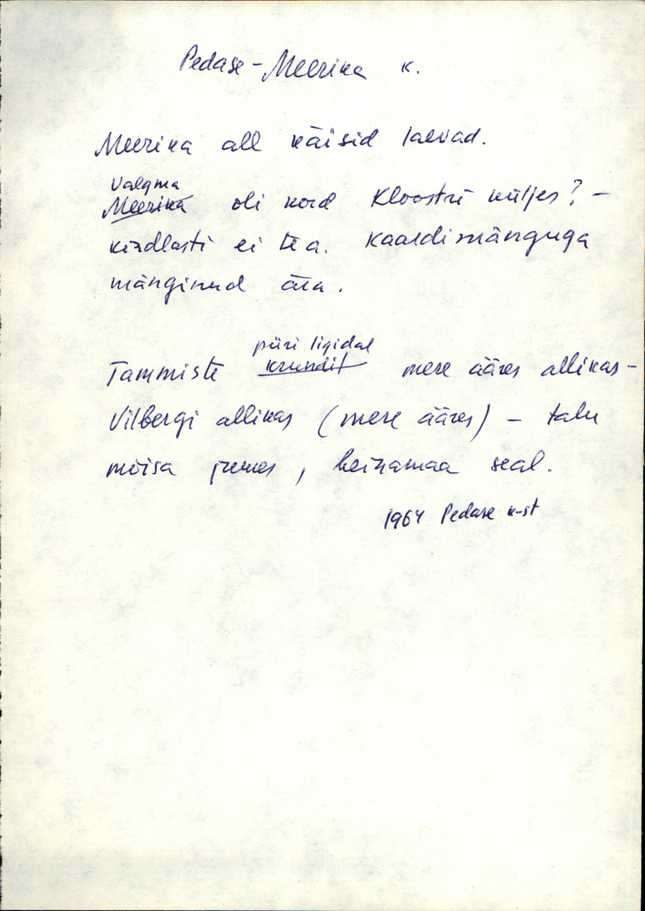 Pedase-Meerika k.
Meerika all käisid laevad.
Valgma
Meerika oli kord Kloostri küljes? -
kindlasti ei tea. Kaardimänguga
mänginud ära.
piiri ligidal
Tammiste krundit mere ääres allikas-
Vilbergi allikas (mere ääres) - talu
mõisa juures, heinamaa seal.
1964 Pedase k-st